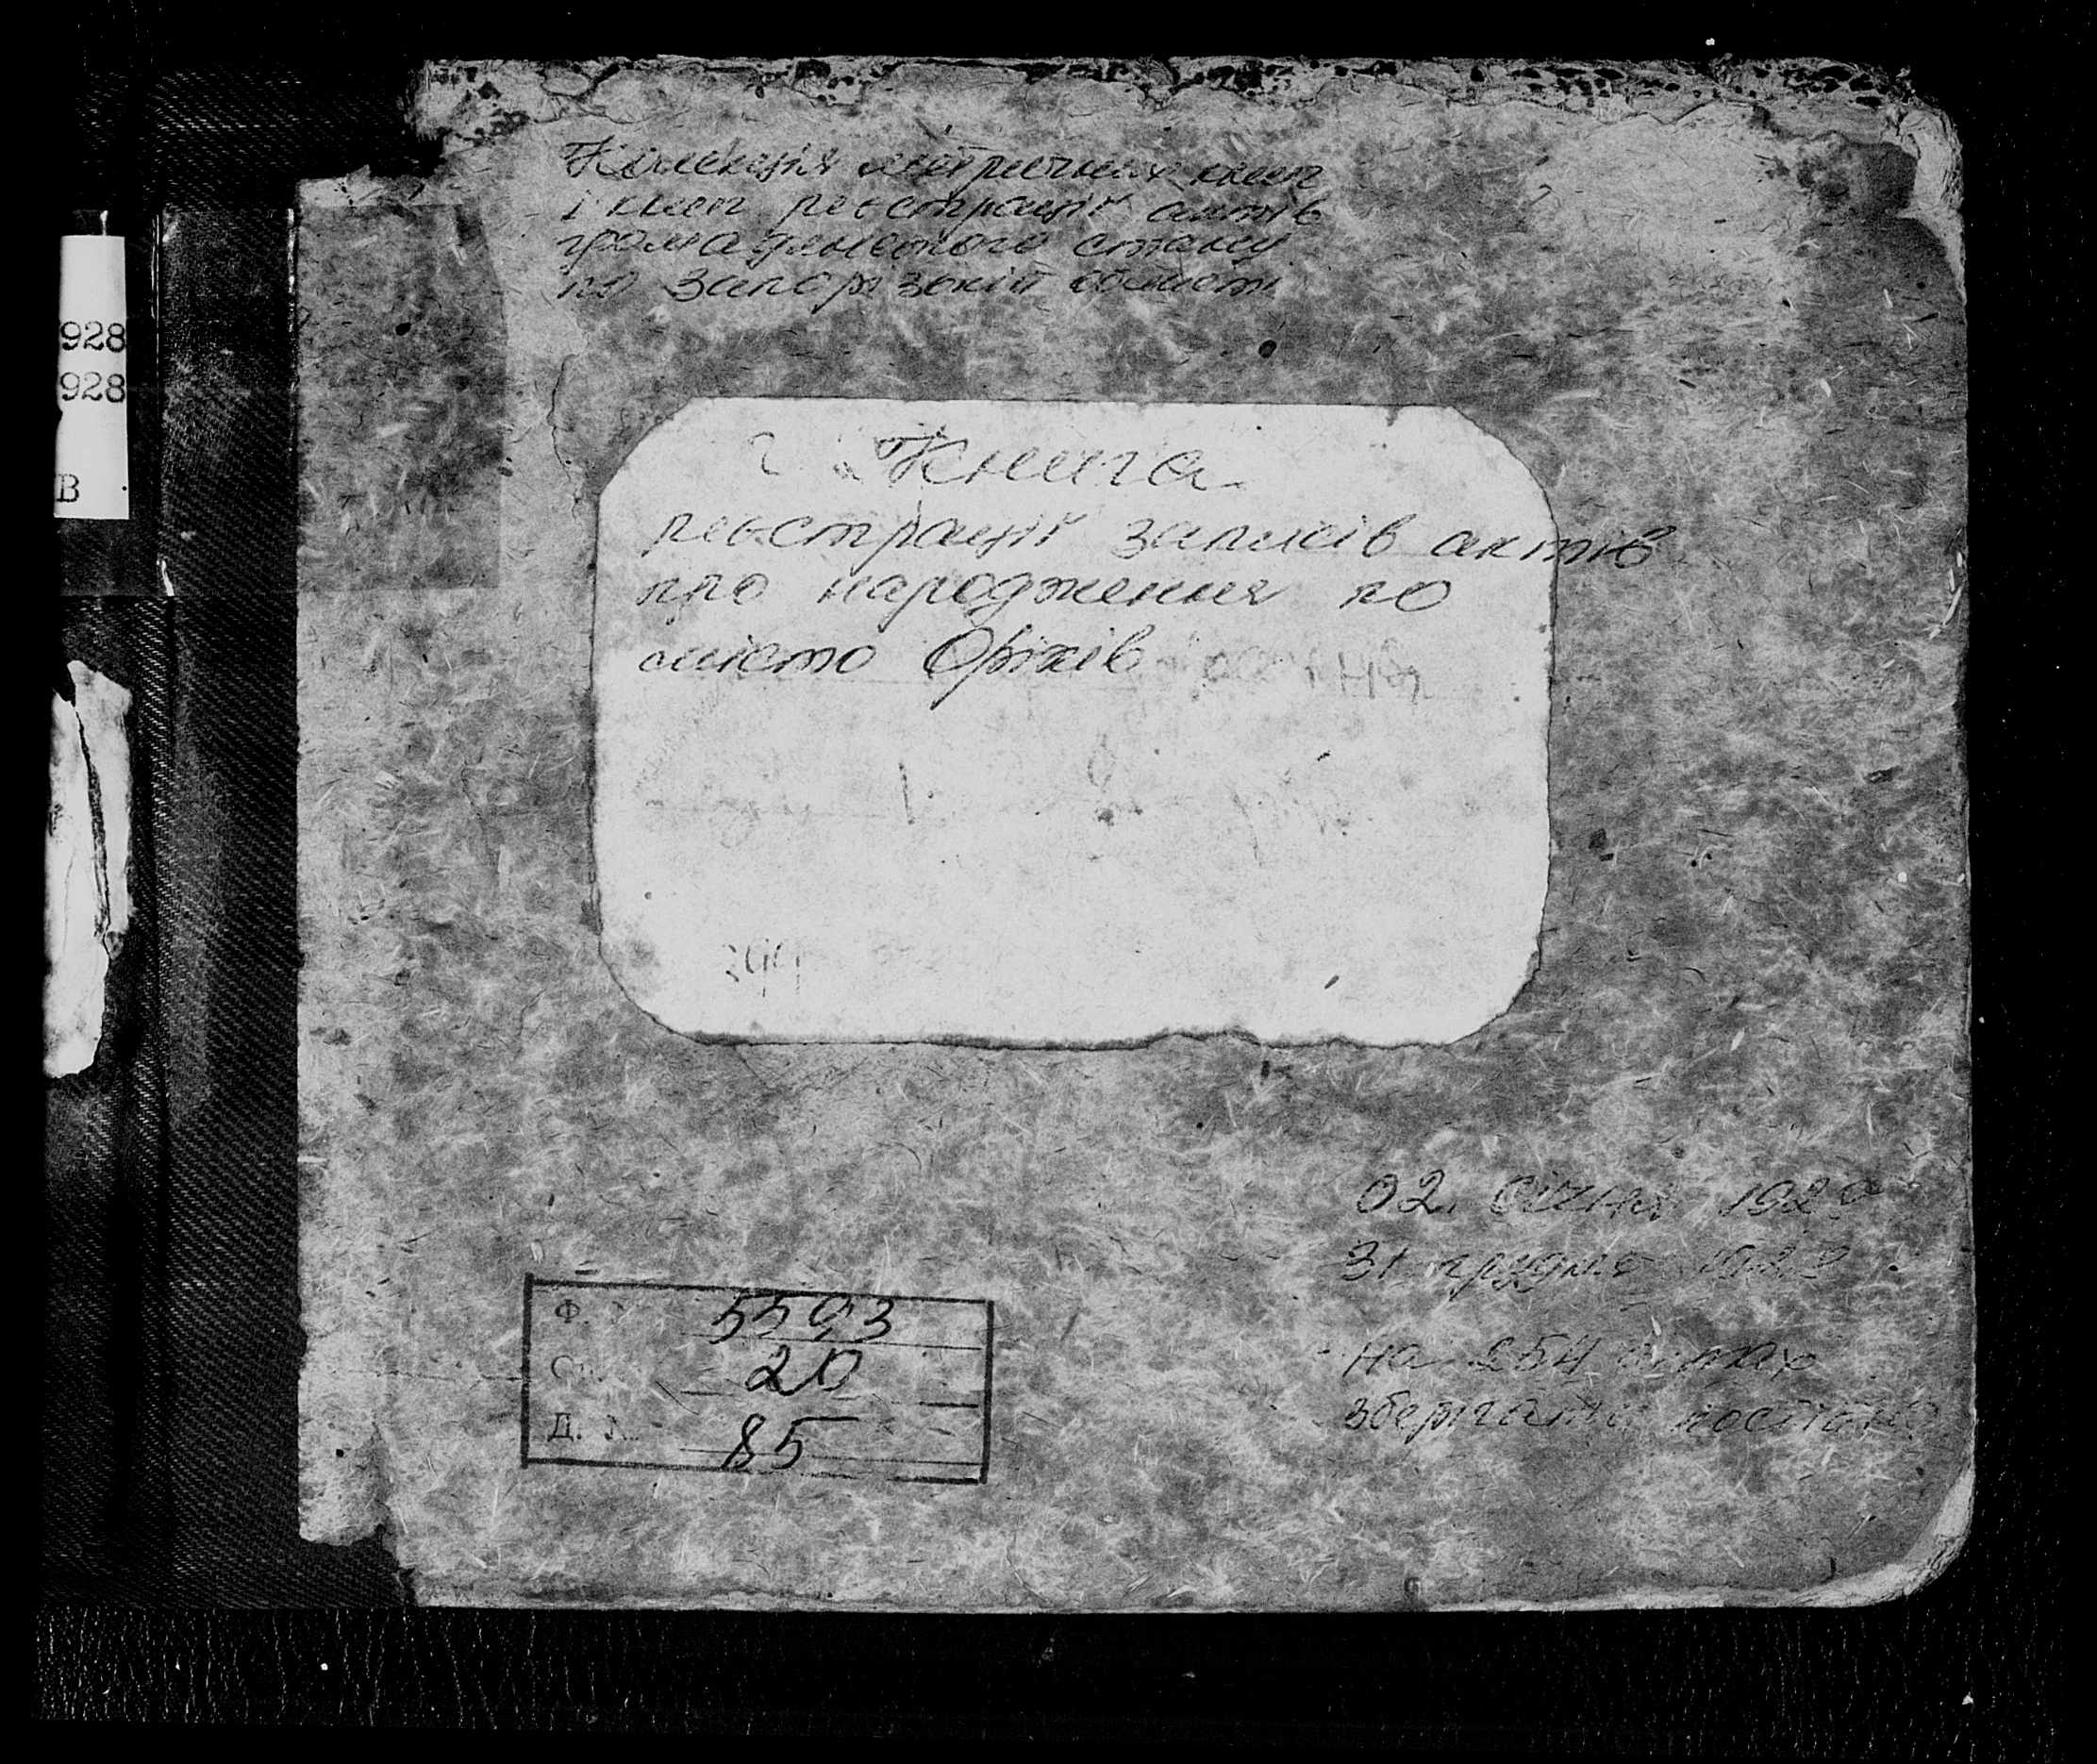 928
928
В
Колекція метричних книг
і книг реєстрації актів
громадянського стану
по Запорізькій області
Книга
реєстрації записів актів
про народження по
місто Оріхів
Ф. 5593
20
Д. 85
02 січня
31 грудня
на 254 аркушах
зберігати постійно